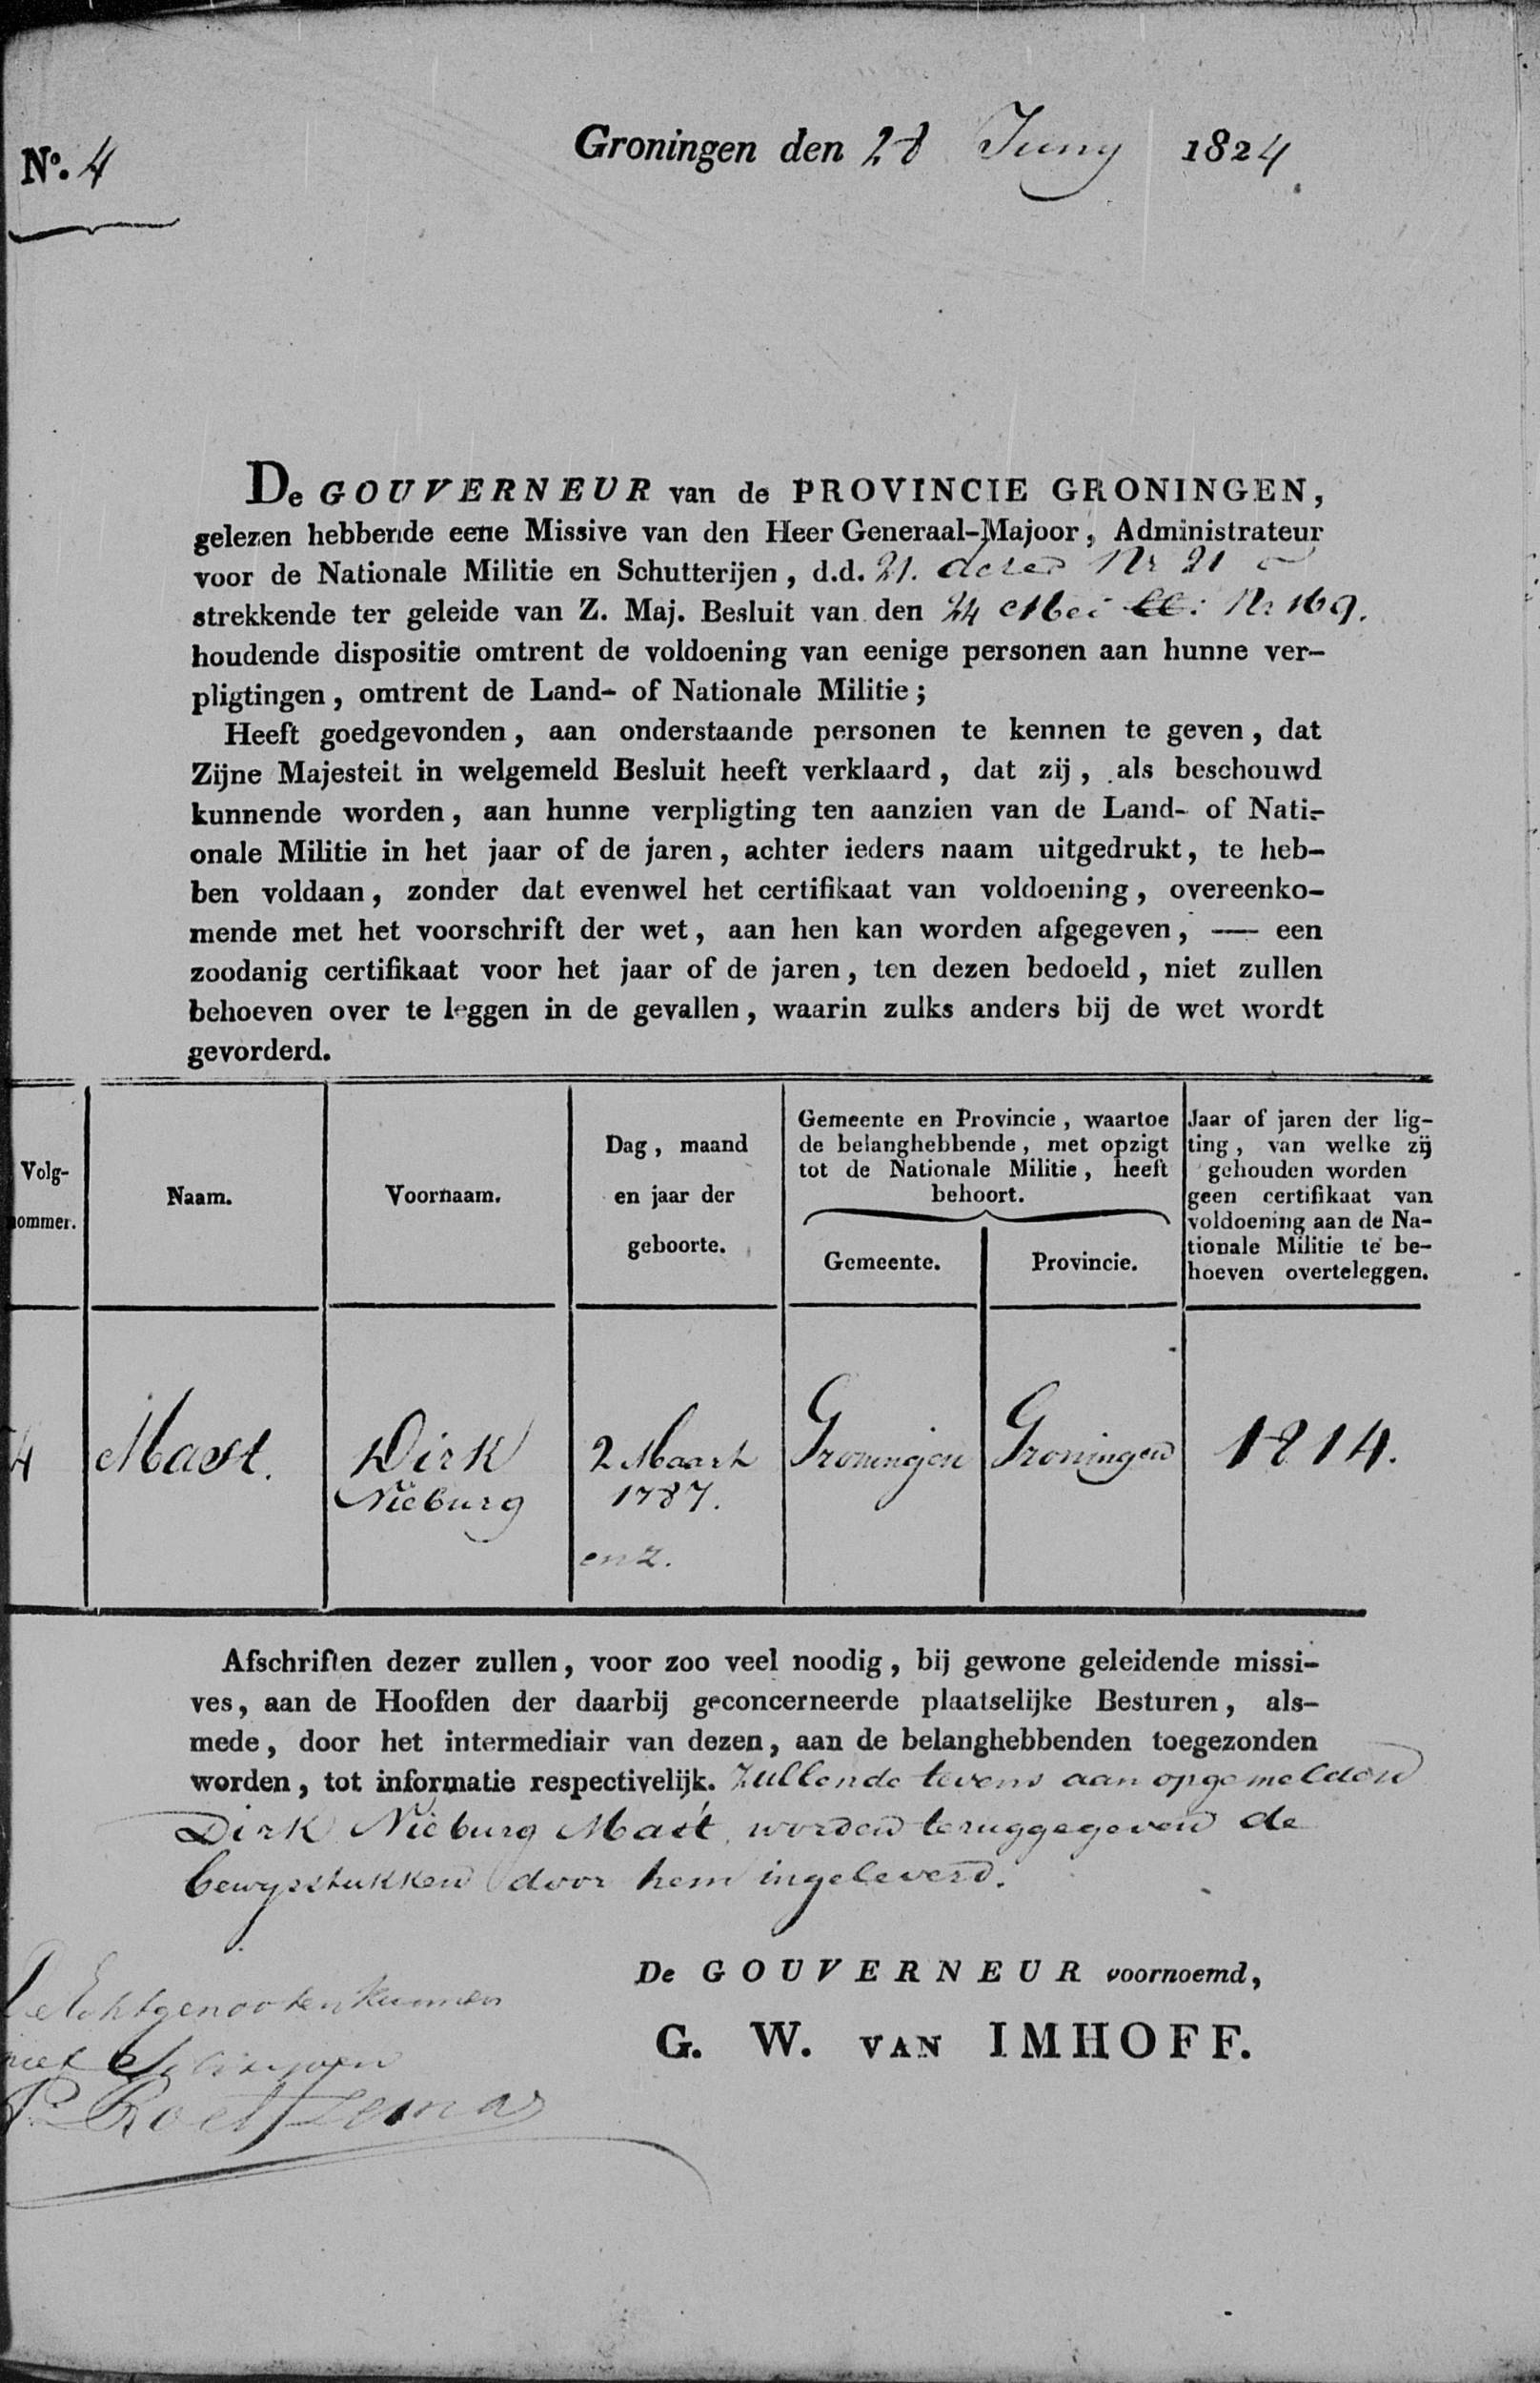 Nº. 4
Groningen den 28 Juny 1824
De GOUVERNEUR van de PROVINCIE GRONINGEN,
gelezen hebbende eene Missive van den Heer Generaal-Majoor, Administrateur
voor de Nationale Militie en Schutterijen, d.d. 21. dezer Nr 21
strekkende ter geleide van Z. Maj. Besluit van den 24 Mei ll: Nr 169.
houdende dispositie omtrent de voldoening van eenige personen aan hunne ver-
pligtingen, omtrent de Land- of Nationale Militie;
Heeft goedgevonden, aan onderstaande personen te kennen te geven, dat
Zijne Majesteit in welgemeld Besluit heeft verklaard, dat zij, als beschouwd
kunnende worden, aan hunne verpligting ten aanzien van de Land- of Nati-
onale Militie in het jaar of de jaren, achter ieders naam uitgedrukt, te heb-
ben voldaan, zonder dat evenwel het certifikaat van voldoening, overeenko-
mende met het voorschrift der wet, aan hen kan worden afgegeven, — een
zoodanig certifikaat voor het jaar of de jaren, ten dezen bedoeld, niet zullen
behoeven over te leggen in de gevallen, waarin zulks anders bij de wet wordt
gevorderd.
Volg-
ommer.
Naam.
Voornaam.
Dag, maand
en jaar der
geboorte.
Gemeente en Provincie, waartoe
de belanghebbende, met opzigt
tot de Nationale Militie, heeft
behoort.
Gemeente.
Provincie.
Jaar of jaren der lig-
ting, van welke zij
gehouden worden
geen certifikaat van
voldoening aan de Na-
tionale Militie te be-
hoeven overteleggen.
4
Mast.
Dirk
Nieburg
2 Maart
1787.
enz.
Groningen
Groningen
1814.
Afschriften dezer zullen, voor zoo veel noodig, bij gewone geleidende missi-
ves, aan de Hoofden der daarbij geconcerneerde plaatselijke Besturen, als-
mede, door het intermediair van dezen, aan de belanghebbenden toegezonden
worden, tot informatie respectivelijk. Zullende tevens aan opgemelden
Dirk Nieburg Mast, worden teruggegeven de
bewysstukken door hem ingeleverd.
De GOUVERNEUR voornoemd,
G. W. VAN IMHOFF.
De Echtgenooten kunnen
niet Schryven